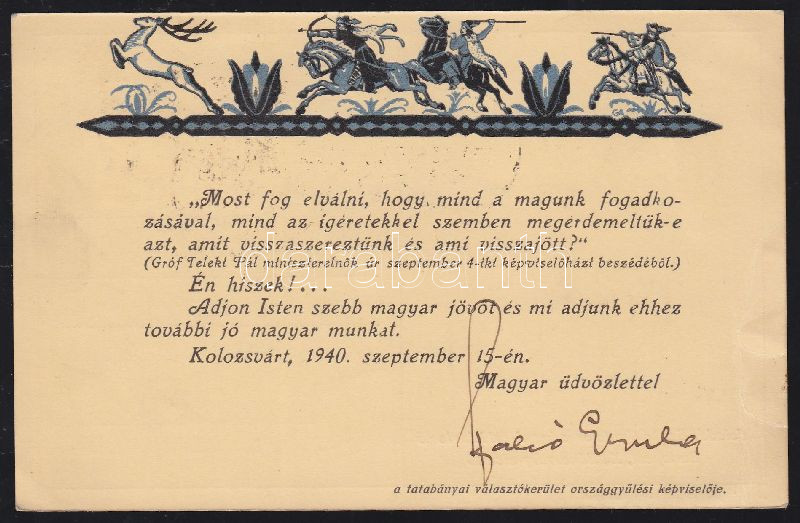 „Most fog elválni, hogy mind a magunk fogadko-
zásával, mind az ígéretekkel szemben megérdemeltük-e
azt, amit visszaszereztünk és ami visszajött?“
(Gróf Teleki Pál miniszterelnök úr szeptember 4-iki képviselőházi beszédéből.)
Én hiszek!...
Adjon Isten szebb magyar jövőt és mi adjunk ehhez
további jó magyar munkát.
Kolozsvárt, 1940. szeptember 15-én.
Magyar üdvözlettel
Gyula
a tatabányai választókerület országgyűlési képviselője.
darabanth